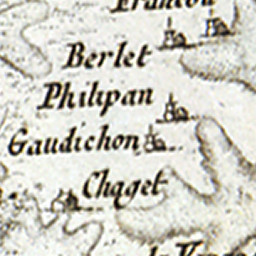 Berlet
Philipan
Gaudichon
Chaget